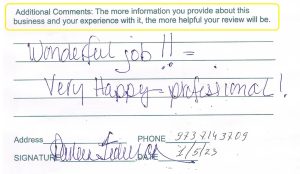 Additional Comments: The more information you provide about this
business and your experience with it, the more helpful your review will be.
Wonderful job !! =
Very Happy - professional !
Address PHONE 9737143709
SIGNATURE DATE 1/5/23